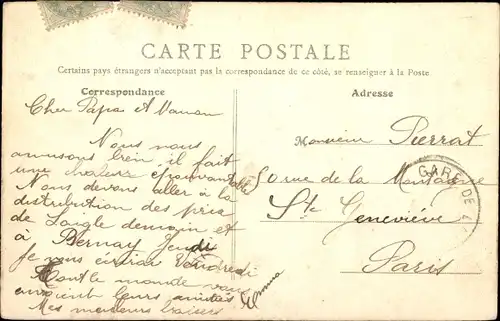 CARTE POSTALE
Certains pays étrangers n'acceptant pas la correspondance de ce côté, se renseigner à la Poste
Correspondance
Cher Papa et Maman
Nous nous
amusons bien, il fait
une chaleur épouvantable
Nous devons aller à la
distribution des prix
de Laigle demain et
à Bernay Jeudi
Je vous écrirai Vendredi
Tout le monde vous
envoient leurs amitiés
Mes meilleurs baisers
Adresse
Monsieur Pierrat
50 rue de la Montagne
Ste Geneviève
Paris
GARE DE